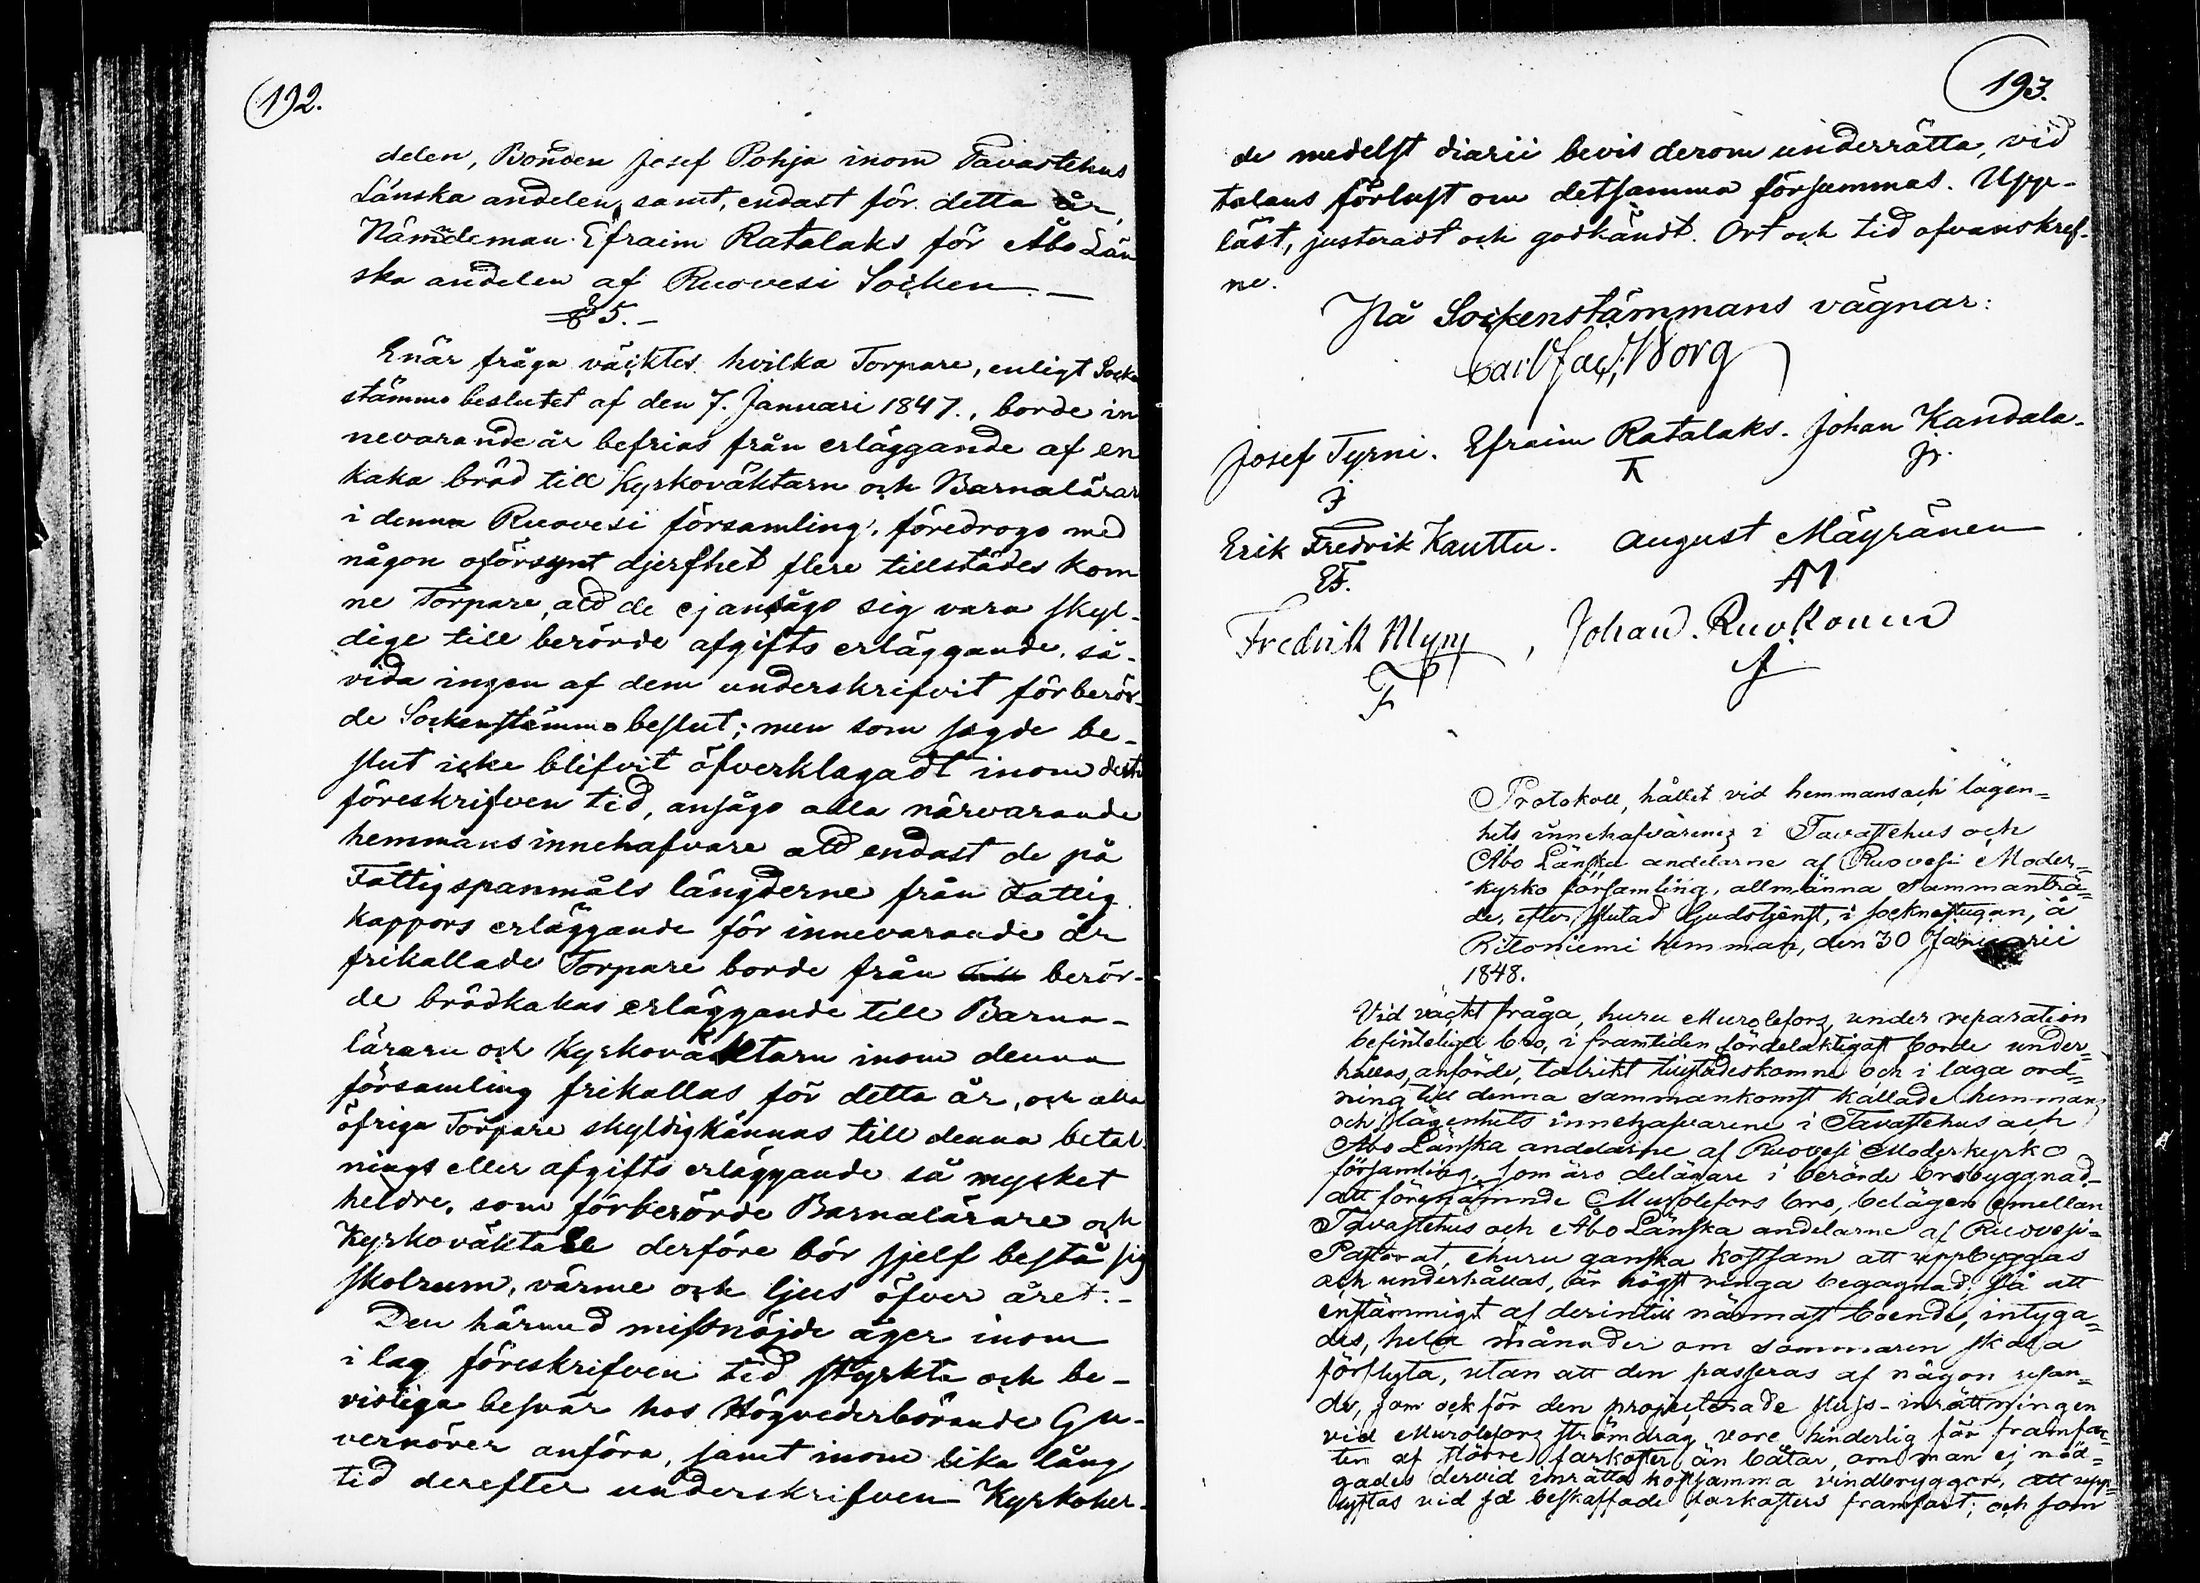 192.
delen, Bonden Josef Pohja inom Tavastehus
Länska andelen, samt, endast för detta år,
Nämdeman Efraim Ratalaks för Åbo Län
ska andelen af Ruovesi Socken. —
§ 5. —
Enär fråga väcktes hvilka Torpare, enligt Socke
stämmo beslutet af den 7. Januari 1847., borde in
nevarande år befrias från erläggande af en
kaka bröd till Kyrkoväktarn och Barnalärar
i denna Ruovesi församling, föredrogo med
någon oförsynt djerfhet flere tillstädes kom
ne Torpare, att de ej ansågo sig vara skyl-
dige till berörde afgifts erläggande, så-
vida ingen af dem underskrifvit förberör-
de Sockenstämmo beslut; men som sagde be-
slut icke blifvit öfverklagadt inom dertill
föreskrifven tid, ansågo alla närvarande
hemmans innehafvare att endast de på
Fattigspanmåls längderne från Fattig
kappors erläggande för innevarande år
frikallade Torpare borde från berör-
de brödkakas erläggande till Barna-
lärarn och Kyrkoväktarn inom denna
församling frikallas för detta år, och alla
öfriga Torpare skyldigkännas till denna betal
nings eller afgifts erläggande så mycket
heldre, som förberörde Barnalärare och
Kyrkoväktare derföre bör sjelf bestå sig
skolrum, värme och ljus öfver året. -
Den härmed missnöjde äger inom
i lag föreskrifven tid styrkte och be-
visliga besvär hos Högvederbörande Gu-
vernörer anföra, samt inom lika lång
tid derefter underskrifven Kyrkoher-
193.
de medelst diarii bevis derom underrätta, vid
talans förlust om detsamma försummas. Upp-
läst, justeradt och godkändt. Ort och tid ofvanskref-
ne.
På Sockenstämmans vägnar:
Carl Jac. Borg
Josef Tyrni. Efraim Ratalaks. Johan Kandala.
Erik Fredrik Kauttu. August Mäyränen
EF. AM
Fredrik Myry, Johan Ruokonen
F J
Protokoll, hållet vid hemmans och lägen=
hets innehafvarenes i Tavastehus och
Åbo Länska andelarne af Ruovesi Moder=
kyrko församling, allmänna Sammanträ=
de, efter slutad Gudstjenst, i socknestugan, å
Ritoniemi hemman, den 30 Januarii
1848.
Vid väckt fråga, huru Murolefors, under reparation
befintelige bro, i framtiden fördelaktigast borde under=
hållas, anförde, talrikt tillstädeskomne och i laga ord=
ning till denna sammankomst kallade hemmans
och lägenhets innehafvarene i Tavastehus och
Åbo Länska andelarne af Ruovesi Moderkyrko
församling, som äro delägare i berörde brobyggnad,
att förenämnde Murolefors bro, belägen emellan
Tavastehus och Åbo Länska andelarne af Ruovesi=
Pastorat, ehuru ganska kostsam att uppbyggas
och underhållas, är högst ringa begagnad; så att
enstämmigt af derintill närmast boende, intyga=
des, hela månader om sommaren skola
förflyta, utan att den passeras af någon resan=
de, som ock för den projecterade sluss-inrättningen
vid Murolefors strömdrag vore hinderlig för framfar=
ten af större farkoster än båtar, om man ej nöd=
gades dervid inrätta kostsamma vindbryggor, att upp=
lyftas vid så beskaffade farkosters framfart; och som